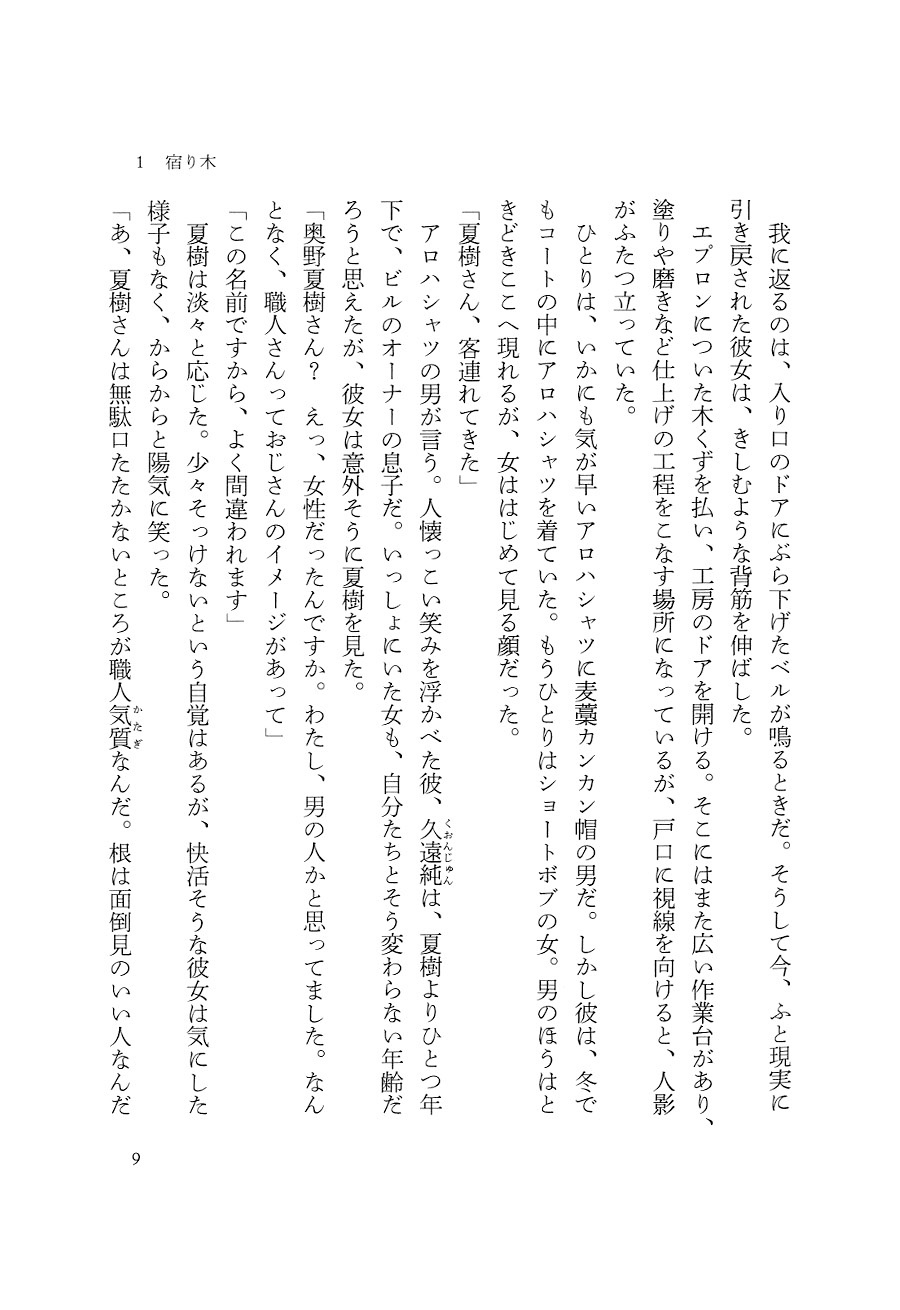 1　宿り木
　我に返るのは、入り口のドアにぶら下げたベルが鳴るときだ。そうして今、ふと現実に
引き戻された彼女は、きしむような背筋を伸ばした。
　エプロンについた木くずを払い、工房のドアを開ける。そこにはまた広い作業台があり、
塗りや磨きなど仕上げの工程をこなす場所になっているが、戸口に視線を向けると、人影
がふたつ立っていた。
　ひとりは、いかにも気が早いアロハシャツに麦藁カンカン帽の男だ。しかし彼は、冬で
もコートの中にアロハシャツを着ていた。もうひとりはショートボブの女。男のほうはと
きどきここへ現れるが、女ははじめて見る顔だった。
「夏樹さん、客連れてきた」
　アロハシャツの男が言う。人懐っこい笑みを浮かべた彼、久遠純は、夏樹よりひとつ年
くおんじゅん
下で、ビルのオーナーの息子だ。いっしょにいた女も、自分たちとそう変わらない年齢だ
ろうと思えたが、彼女は意外そうに夏樹を見た。
「奥野夏樹さん？　えっ、女性だったんですか。わたし、男の人かと思ってました。なん
となく、職人さんっておじさんのイメージがあって」
「この名前ですから、よく間違われます」
　夏樹は淡々と応じた。少々そっけないという自覚はあるが、快活そうな彼女は気にした
様子もなく、からからと陽気に笑った。
「あ、夏樹さんは無駄口たたかないところが職人気質なんだ。根は面倒見のいい人なんだ
かたぎ
9